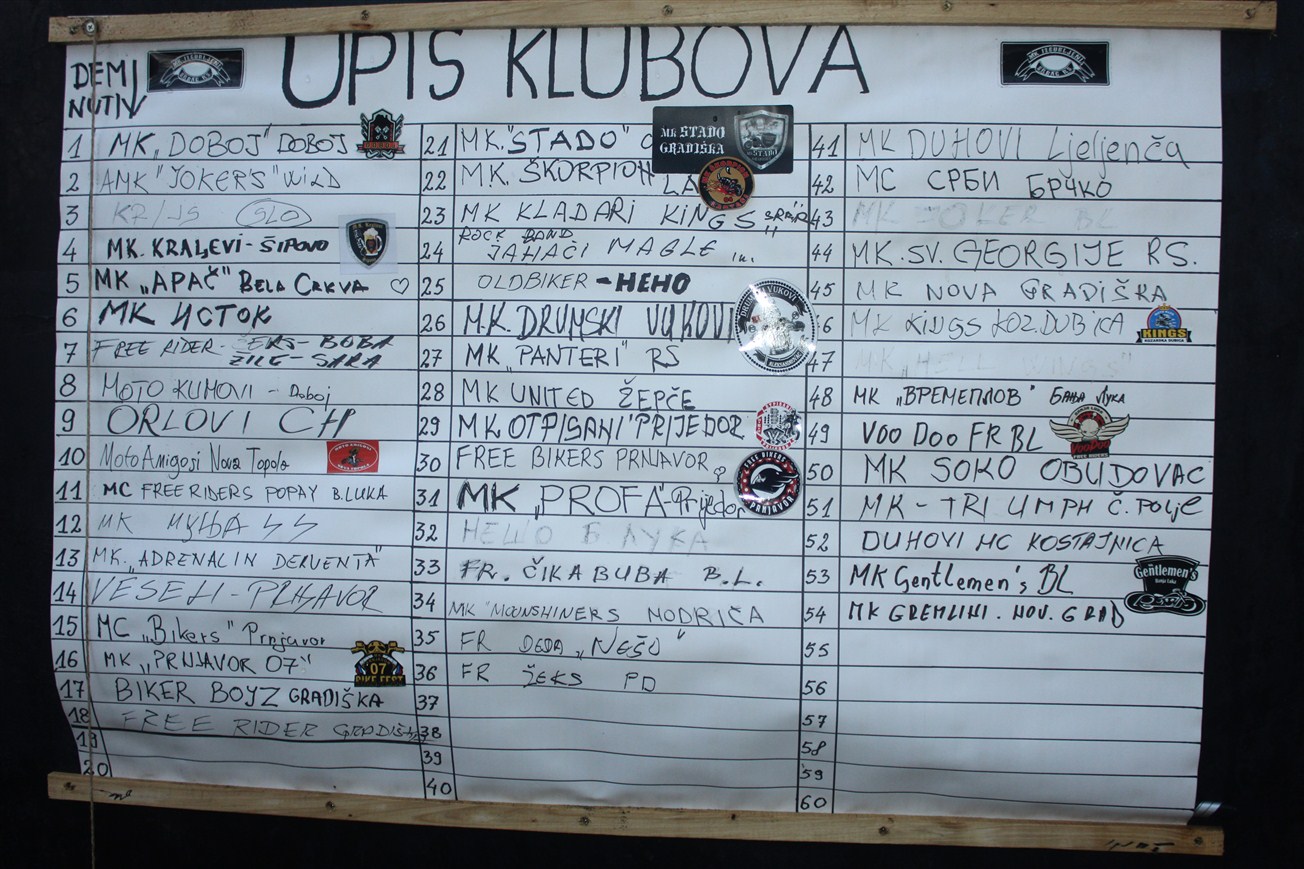 UPIS KLUBOVA
DEMI
NUTI
1 MK „DOBOJ" DOBOJ
2 AMK "JOKER'S" WILD
3 KR/JS SLO
4 MK. KRALJEVI - ŠIPOVO
5 MK „APAČ" BELA CRKVA
6 MK ИСТОК
7 FREE RIDER - ŽEKS - BOBA
ŽILE - SARA
8 MOTO KUMOVI - Doboj
9 ORLOVI CH
10 Moto Amigosi Nova Topola
11 MC FREE RIDERS POPAY B.LUKA
12 MK
13 MK. „ADRENALIN DERVENTA"
14 VESELI - PRNJAVOR
15 MC „Bikers" Prnjavor
16 MK „PRNJAVOR 07"
07
BIKE FEST
17 BIKER BOYZ GRADIŠKA
18 FREE RIDER GRADIŠKA
19
20
21 MK. "STADO"
MK STADO
GRADIŠKA
MK STADO
22 M.K. ŠKORPION
LA
23 MK KLADARI KINGS
24 ROCK BAND
JAHAČI MAGLE
25 OLDBIKER - НЕНО
26 M.K. DRUMSKI VUKOVI
27 MK „PANTERI" RS
28 MK UNITED ŽEPČE
29 MK OTPISANI "PRIJEDOR
30 FREE BIKERS PRNJAVOR
FREE BIKERS
PRNJAVOR
31 MK „PROFA" - Prijedor
32 НЕШО Б ЛУКА
33 FR. ČIKA BUBA B.L.
34 MK "MOONSHINERS MODRIČA
35 FR DEDA „NEŠO"
36 FR ŽEKS PD
37
38
39
40
41 MK DUHOVI Ljeljenča
42 MC СРБИ БРЧКО
43 MK JOKER BL
44 MK. SV. GEORGIJE RS.
45 MK NOVA GRADIŠKA
46 MK KINGS KOZ. DUBICA
KINGS
47 MK „HELL WINGS"
48 МК „ВРЕМЕПЛОВ" БАЊА ЛУКА
49 VOO DOO FR BL
VOODOO
FREE RIDERS
50 MK SOKO OBUDOVAC
51 MK - TRIUMPH Č. POLJE
52 DUHOVI MC KOSTAJNICA
53 MK Gentlemen's BL
Gentlemen's
Banja Luka
54 MK GREMLINI. NOV. GRAD
55
56
57
58
59
60